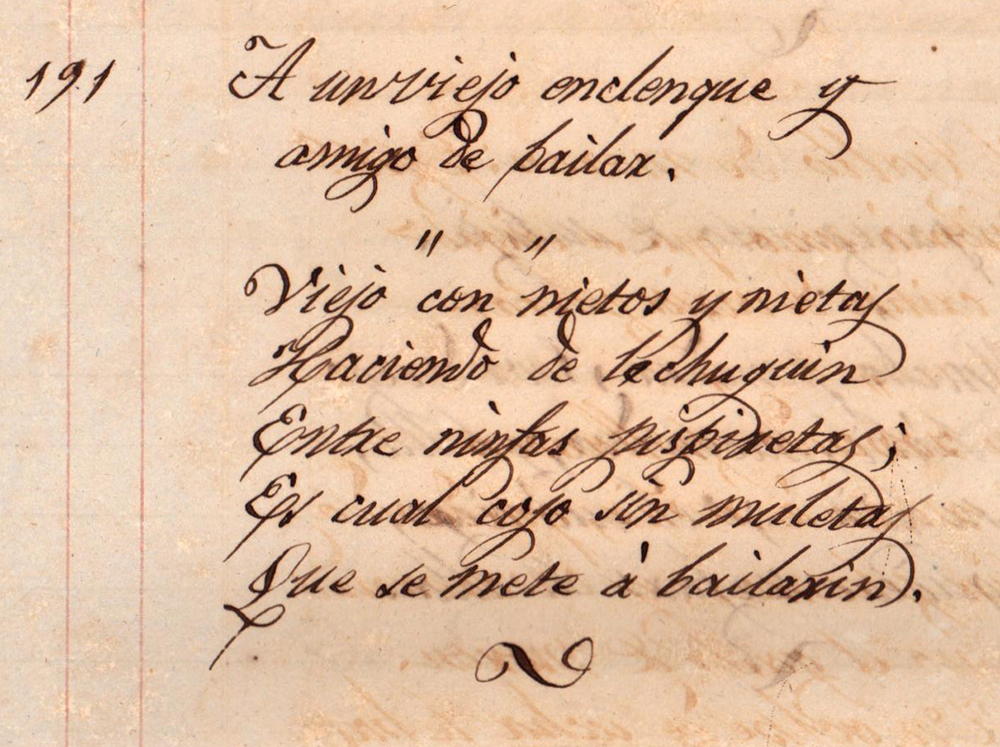 191 A un viejo enclenque y
amigo de bailar.
" "
Viejo con nietos y nietas
Haciendo de lechuguin
Entre ninfas pispiretas;
Es cual cojo sin muletas
Que se mete á bailarin.